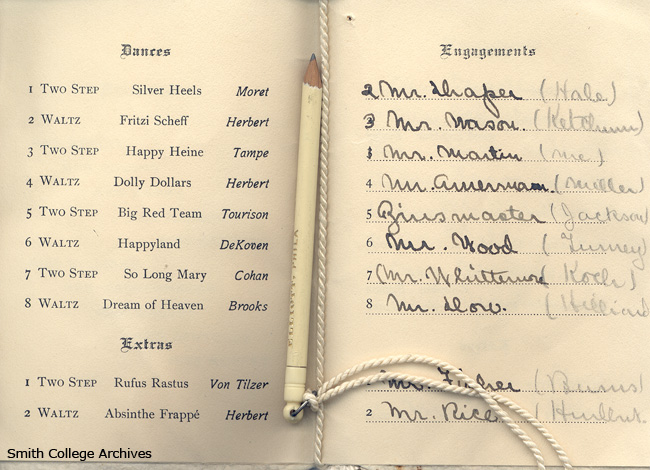 Dances
1 TWO STEP Silver Heels Moret
2 WALTZ Fritzi Scheff Herbert
3 TWO STEP Happy Heine Tampe
4 WALTZ Dolly Dollars Herbert
5 TWO STEP Big Red Team Tourison
6 WALTZ Happyland DeKoven
7 TWO STEP So Long Mary Cohan
8 WALTZ Dream of Heaven Brooks
Extras
1 TWO STEP Rufus Rastus Von Tilzer
2 WALTZ Absinthe Frappé Herbert
Engagements
2 Mr. Shaper (Hale)
3 Mr. Wason. (Ketchum)
1 Mr. Martin (me)
4 Mr. Amerman. (Miller)
5 Binsmaster (Jackson)
6 Mr. Wood (Turney)
7 Mr. Whittemore (Koch)
8 Mr. Dow. (Hilliard
1 Mr. Fisher (Burns)
2 Mr. Rice (Hurlbut.
Smith College Archives